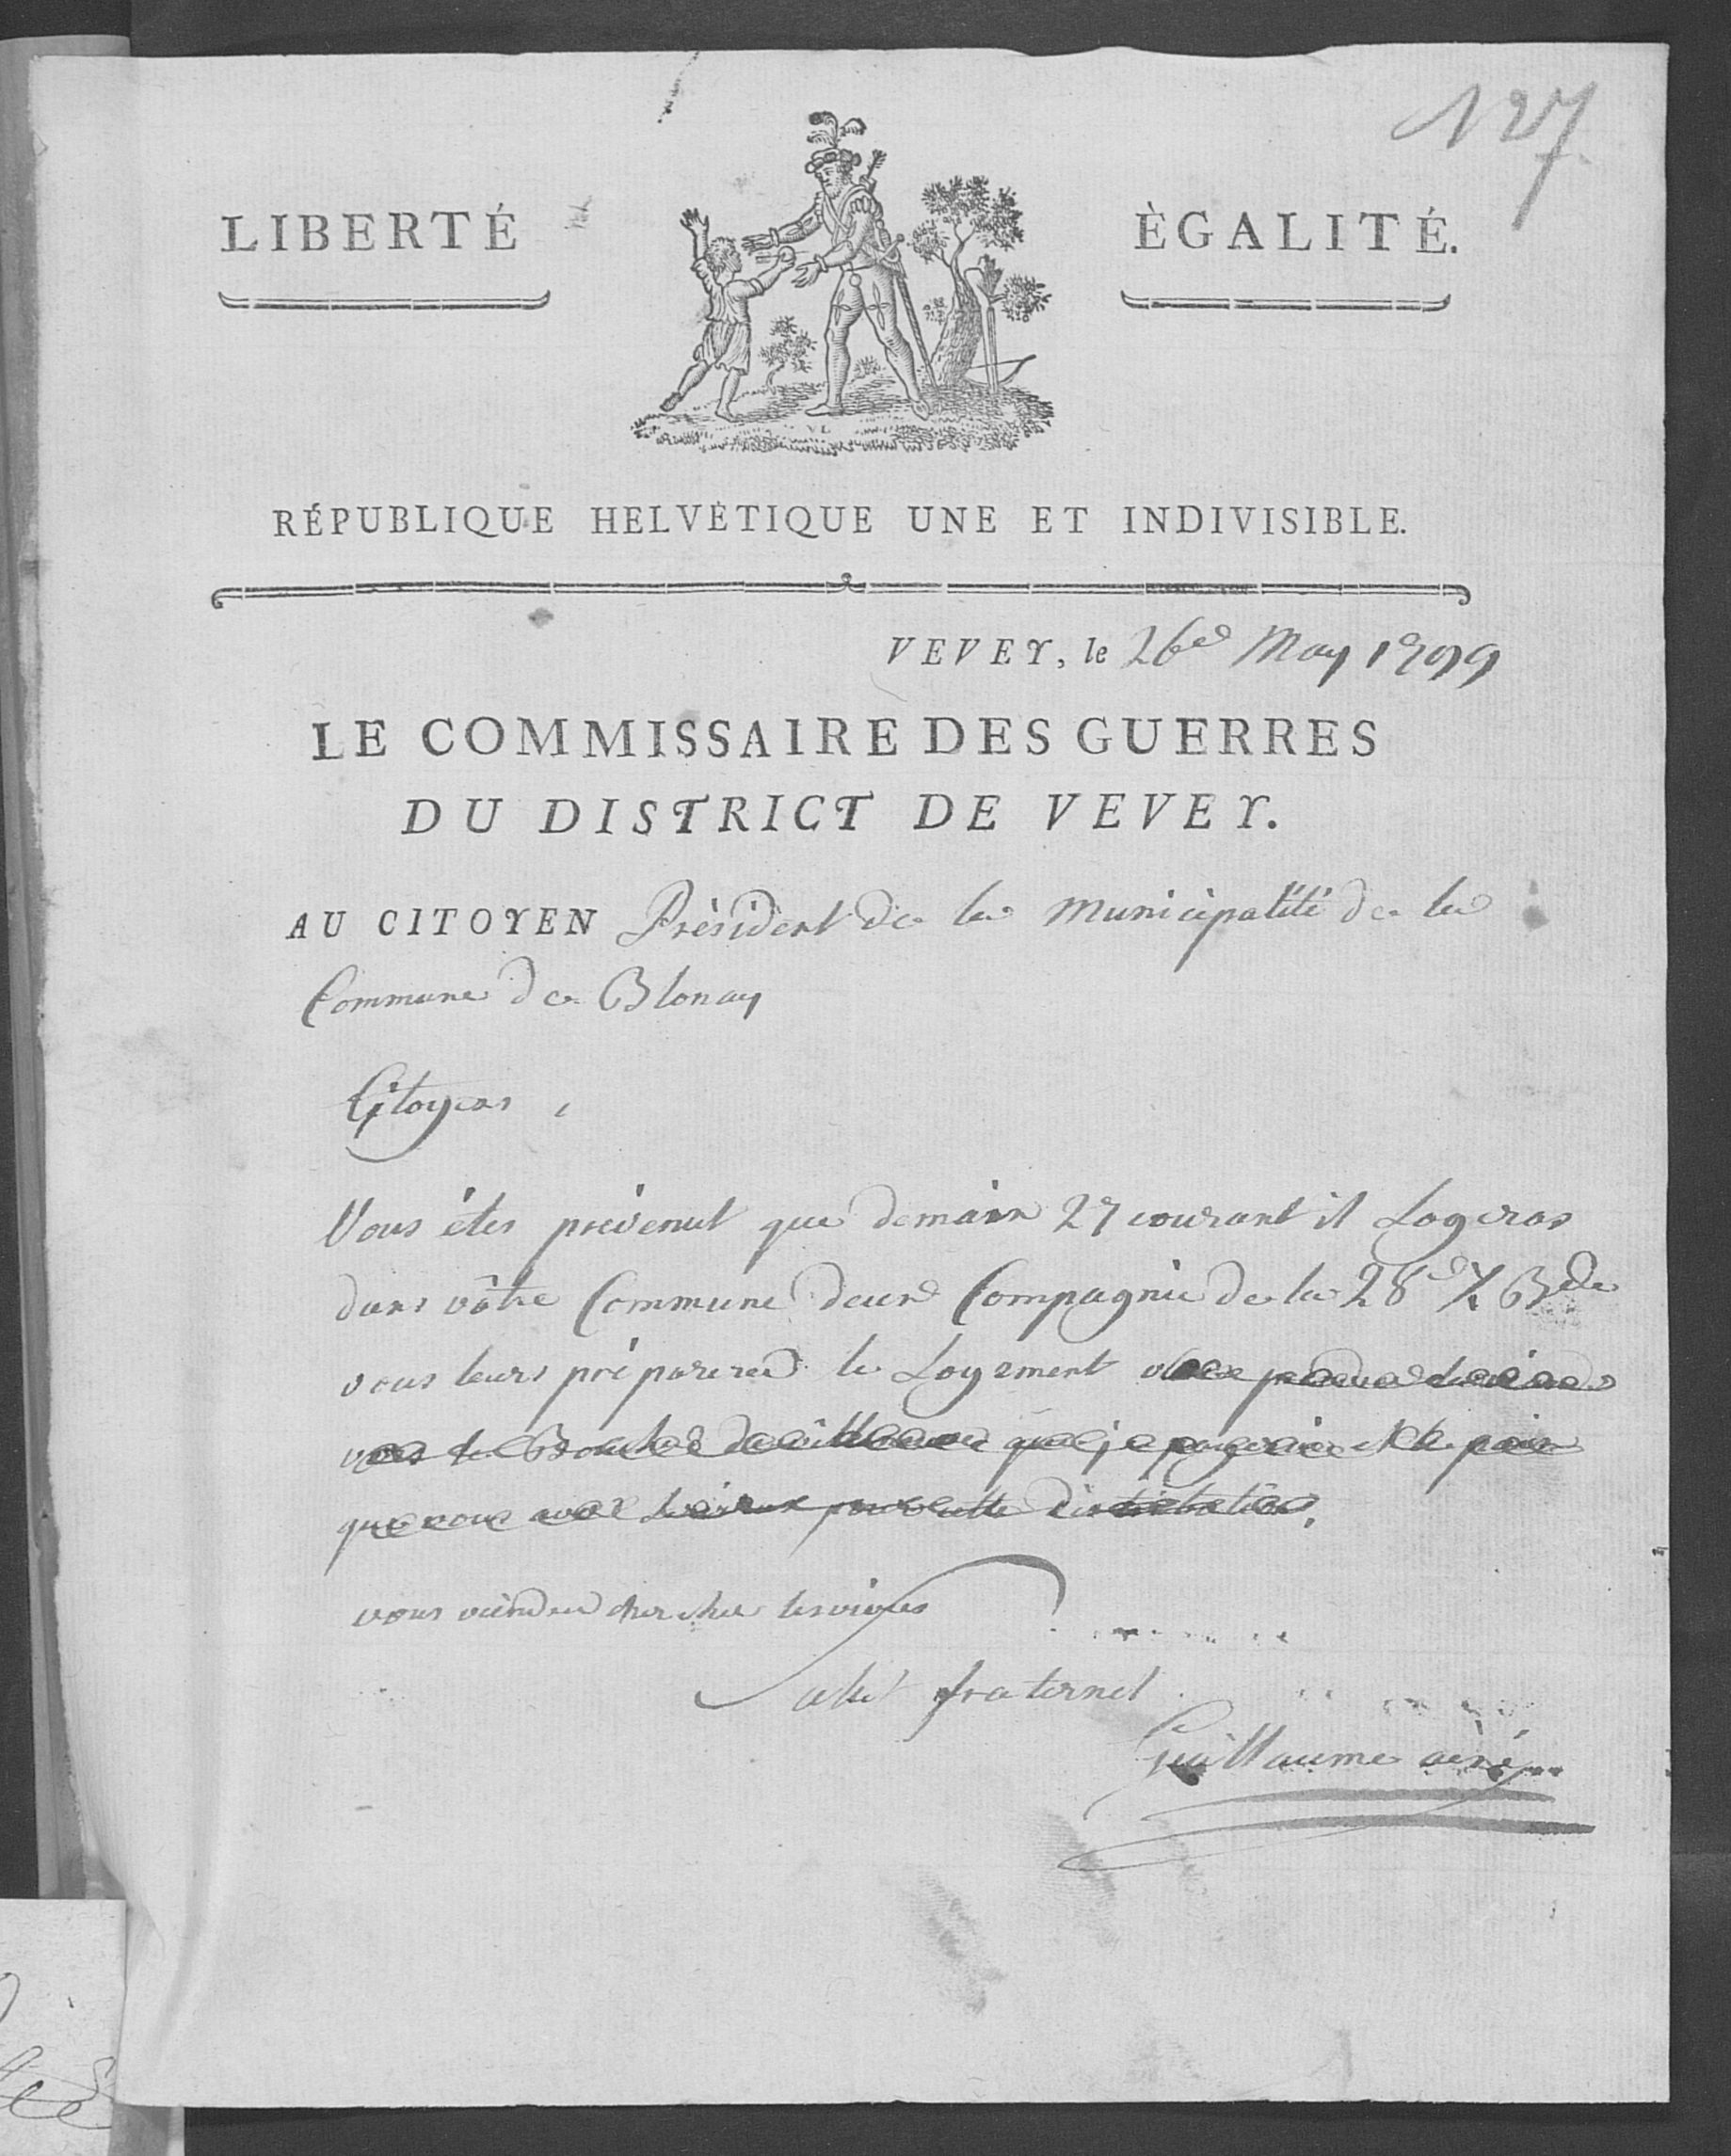 127
LIBERTÉ ÈGALITÉ.
VL
RÉPUBLIQUE HELVÉTIQUE UNE ET INDIVISIBLE.
VEVEY, le 26e May 1799
LE COMMISSAIRE DES GUERRES
DU DISTRICT DE VEVEY.
AU CITOYEN Président de la Municipalité de la
Commune de Blonay
Citoyens,
Vous étes prévenut que demain 27 courant il Logeras
dans vôtre Commune deux Compagnie de la 28e ½ Bde
vous leurs préparerez le Logement
que je payerai et le pain
que vous pour cette distribution.
vous viendrez chercher les vivres
Salut fraternel
Guillaume ainé